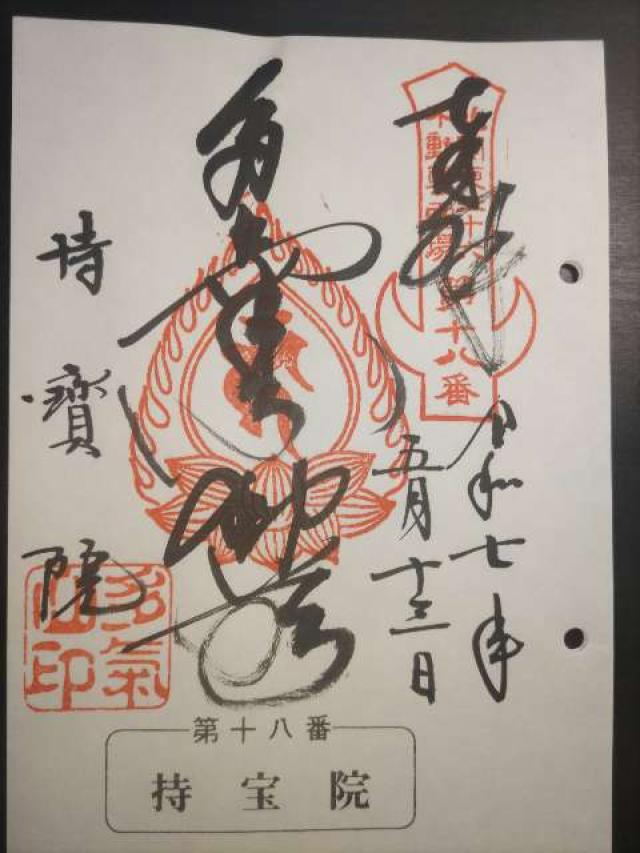 奉拝
北関東三十六
不動尊霊場
第十八番
令和七年
五月十三日
持寳院
多氣
山印
第十八番
持宝院